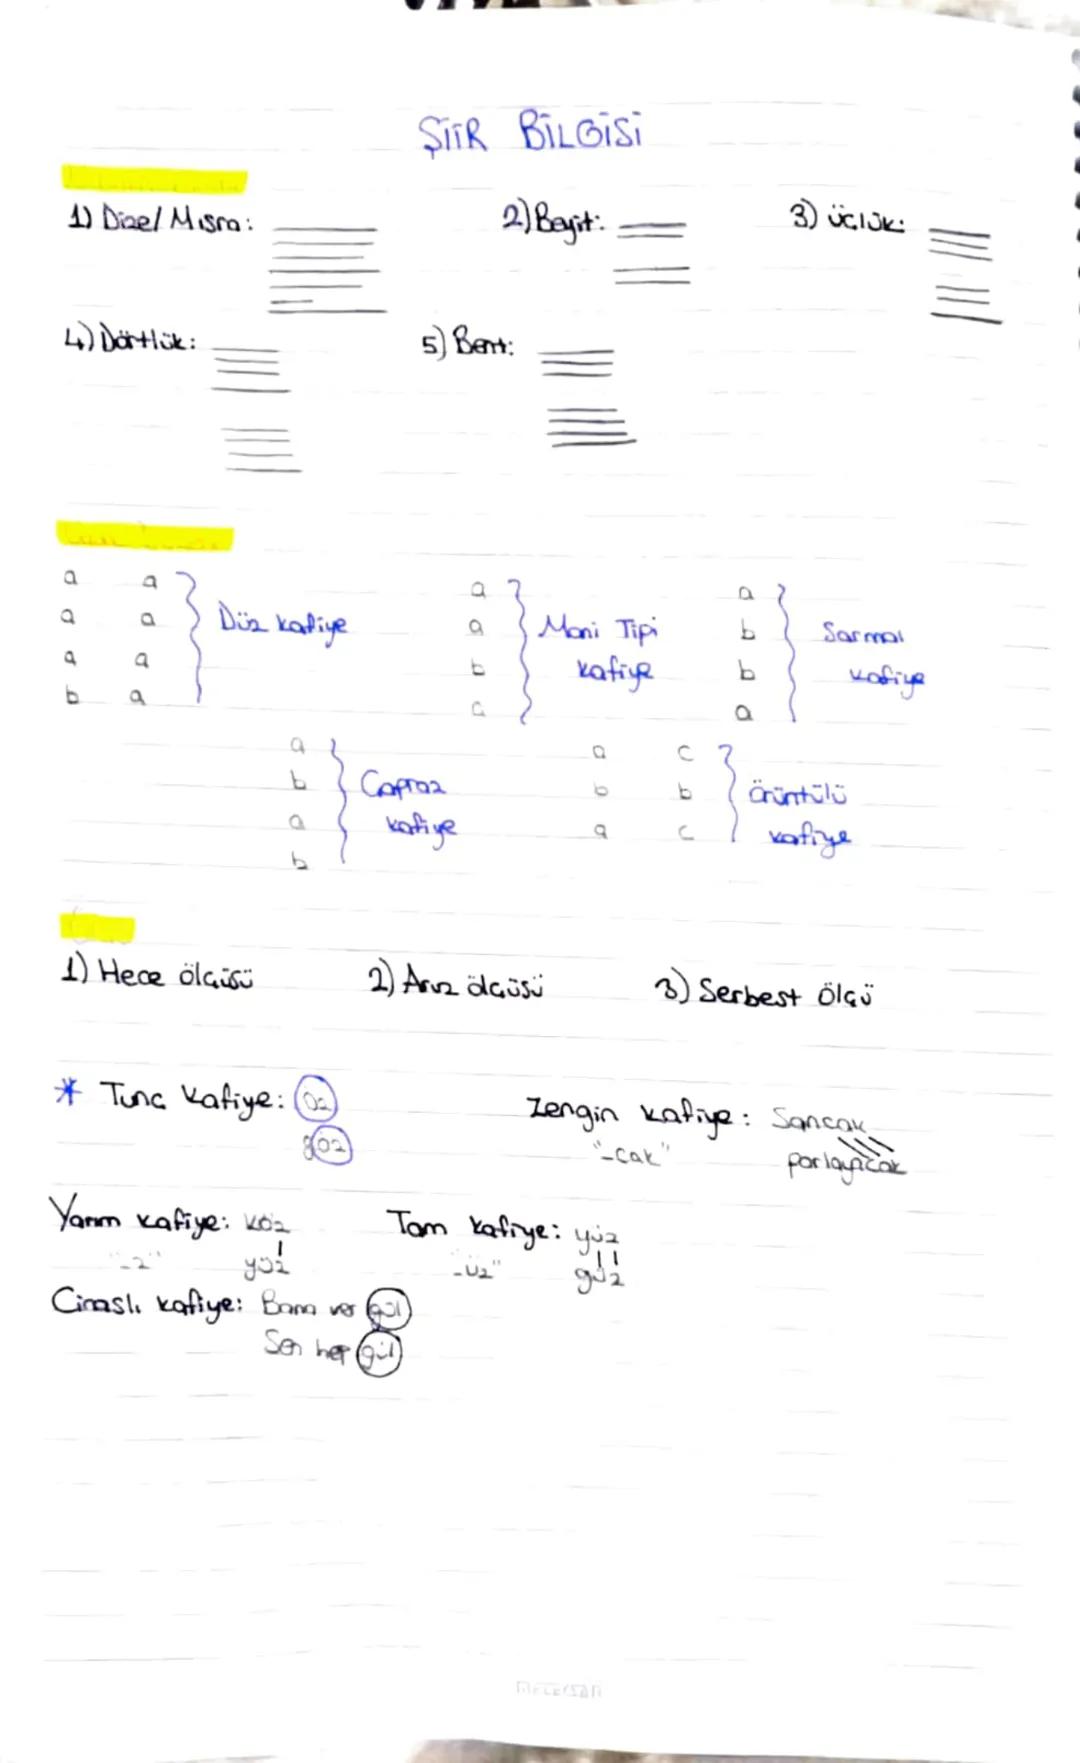 ŞİİR BİLGİSİ
1) Dize/ Mısra: 2) Beyit: 3) üçlük:
4) Dörtlük: 5) Bent:
a a
a a
a a
b a
Düz kafiye
a
a
b
c
Mani Tipi
kafiye
a
b
b
a
Sarmal
kafiye
a
b
a
b
Çapraz
kafiye
a c
b b
a c
Örüntülü
kafiye
1) Hece ölçüsü 2) Aruz ölçüsü 3) Serbest Ölçü
* Tunç Kafiye: öz
göz
Zengin kafiye: Sancak
"-cak" parlayıcak
Yarım kafiye: köz
"-z" yüz
Tam kafiye: yüz
-üz" güz
Cinaslı kafiye: Bana ver gül
Sen hep gül